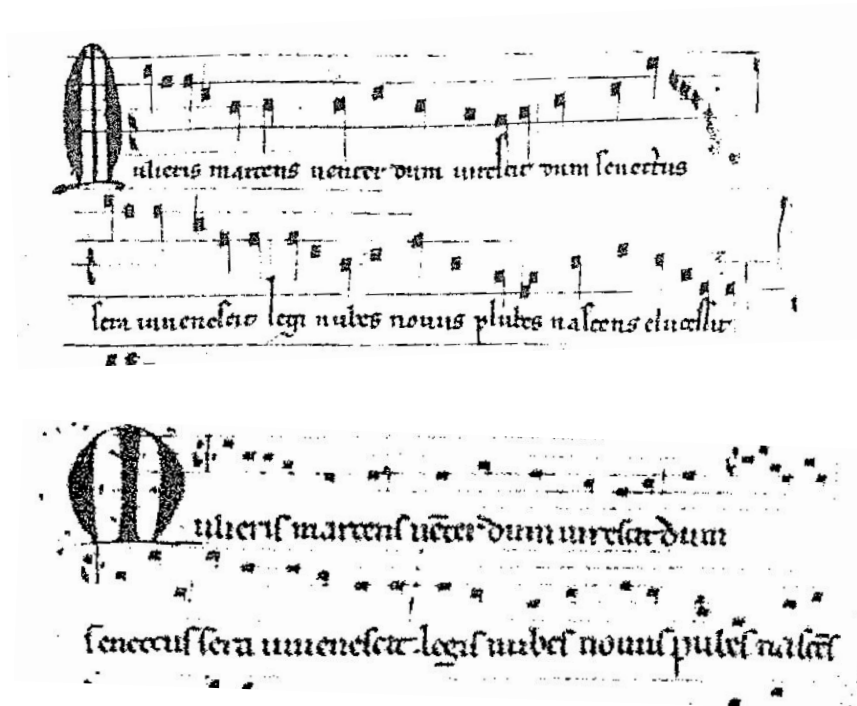 Mulieris marcens venter dum virescit dum senectus
sera iuvenescit legi nubes novus plubes nascens elucessit
Mulieris marcens vēter dum virescit dum
senectus sera iuvenescit legis nubes novus pubes nascēs